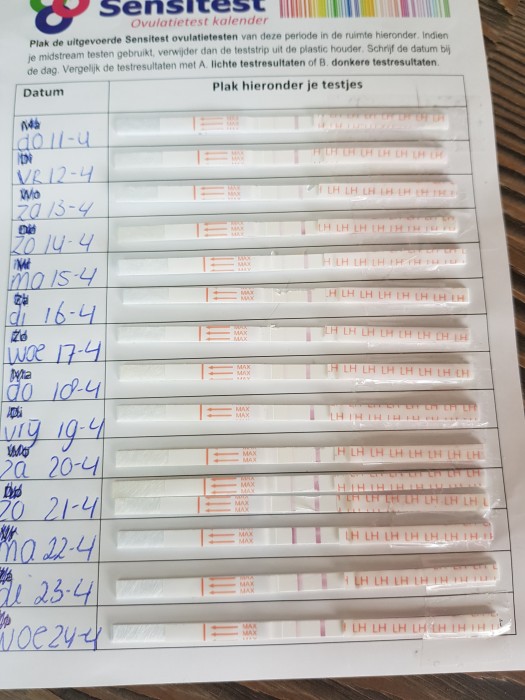 Sensitest
Ovulatietest kalender
Plak de uitgevoerde Sensitest ovulatietesten van deze periode in de ruimte hieronder. Indien
je midstream testen gebruikt, verwijder dan de teststrip uit de plastic houder. Schrijf de datum bij
de dag. Vergelijk de testresultaten met A. lichte testresultaten of B. donkere testresultaten.
Datum Plak hieronder je testjes
do 11-4 MAX MAX LH LH LH LH LH LH
VR 12-4 MAX MAX LH LH LH LH LH LH
Wo
za 13-4 MAX MAX LH LH LH LH LH LH
zo 14-4 MAX MAX LH LH LH LH LH LH
ma 15-4 MAX MAX LH LH LH LH LH LH
di 16-4 MAX MAX LH LH LH LH LH LH
woe 17-4 MAX MAX MAX LH LH LH LH LH LH
do 18-4 MAX MAX LH LH LH LH LH LH
vrij 19-4 MAX MAX LH LH LH LH LH LH
za 20-4 MAX MAX LH LH LH LH LH LH
MAX MAX LH LH LH LH LH LH
zo 21-4 MAX MAX MAX LH LH LH LH LH LH
ma 22-4 MAX MAX LH LH LH LH LH LH
di 23-4 MAX MAX LH LH LH LH LH LH
woe 24-4 MAX MAX MAX LH LH LH LH LH LH